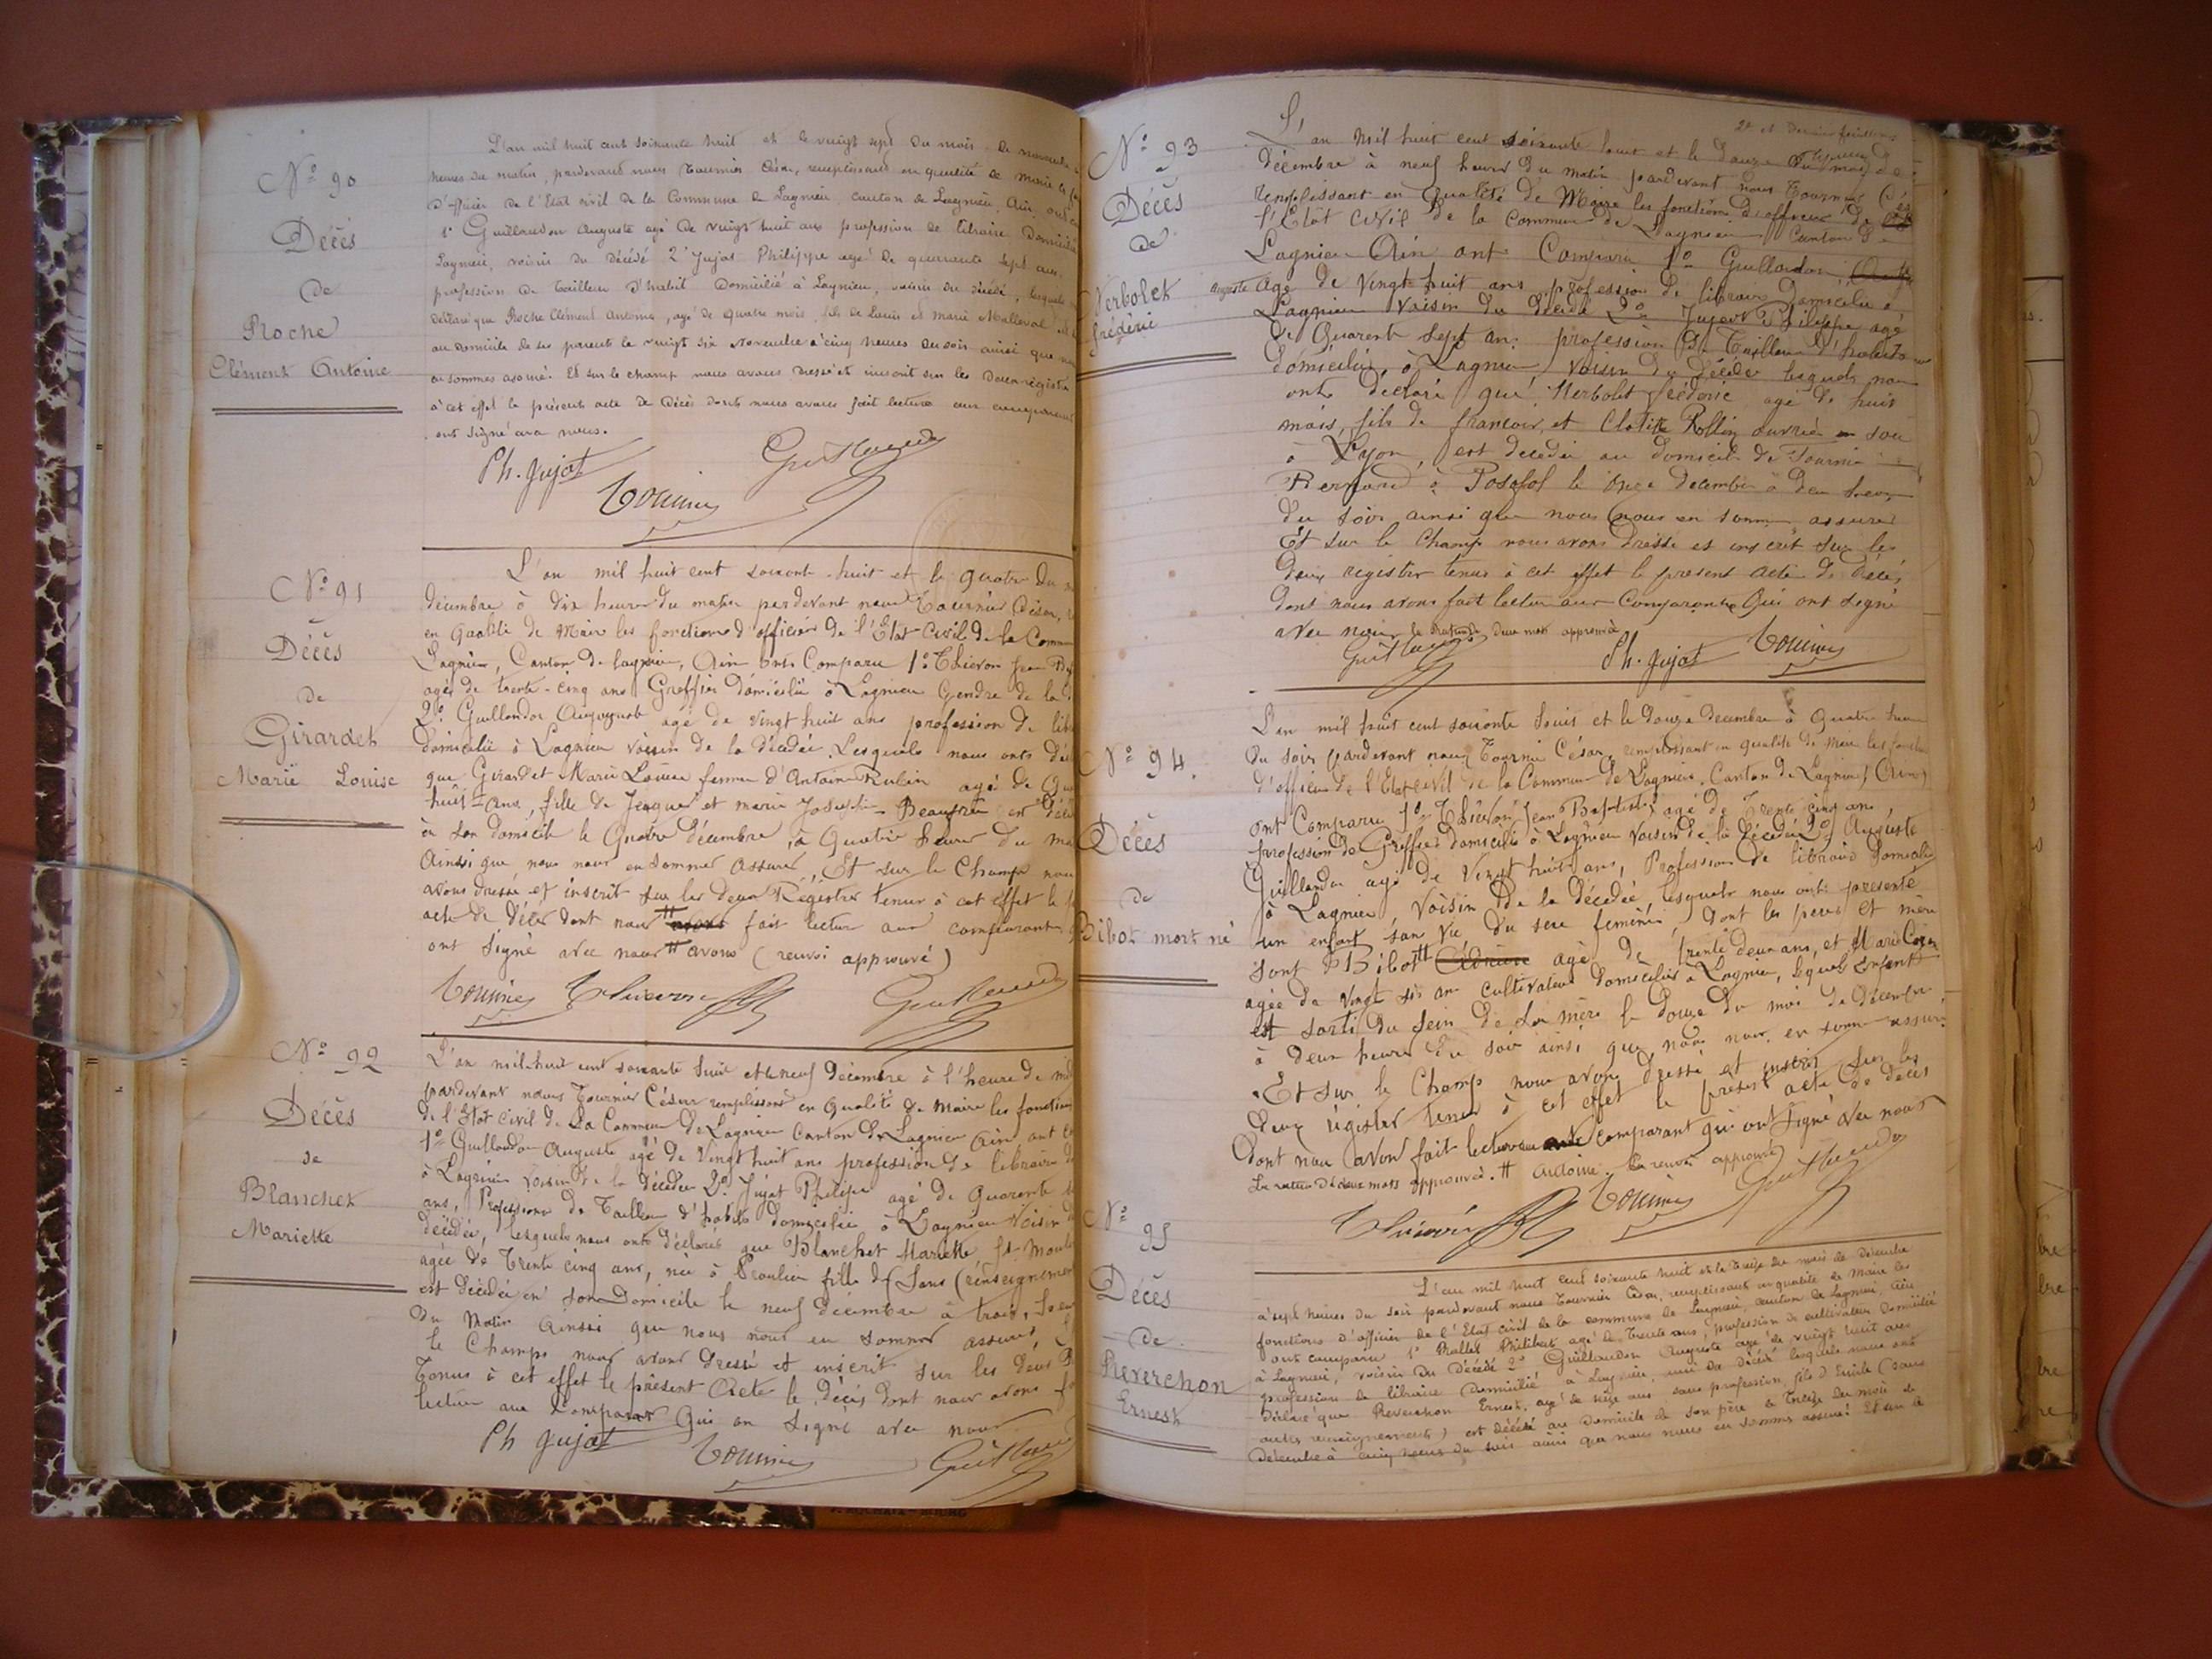 N° 90
Décès
de
Roche
Clément Antoine
L'an mil huit cent soixante huit et le vingt sept du mois de novembre
heures du matin, pardevant nous Tournier César, remplissant en qualité de Maire les
d'officier de l'Etat civil de la Commune de Lagnieu, canton de Lagnieu, Ain, ont
1° Guillaudon Auguste agé de vingt huit ans profession de libraire Domicilié
Lagnieu, voisin du Décédé 2° Jujat Philippe agé de quarante sept ans,
profession de Tailleur d'habit Domicilié à Lagnieu, voisin du décédé, lesquels
déclaré que Roche Clément Antoine, agé de quatre mois, fils de Louis et Marie Malleval
au domicile de ses parents le vingt six novembre à cinq heures du soir ainsi que nous
en sommes assuré. Et sur le champ nous avons dressé et inscrit sur les Deux registres
à cet effet le présent acte de Décès dont nous avons fait lecture aux comparants
ont signé avec nous.
Ph. Jujat
Guillaudon
Tournier
N° 91
Décès
de
Girardet
Marie Louise
L'an mil huit cent soixante-huit et le quatre du
décembre à dix heures du matin pardevant nous Tournier César,
en qualité de Maire les fonctions d'officier de l'Etat Civil de la Commune
Lagnieu, Canton de Lagnieu, Ain ont Comparu 1° Thiévon Jean
agé de trente-cinq ans Greffier domicilié à Lagnieu Gendre de la
2° Guillaudon Auguste agé de vingt huit ans profession de
domicilié à Lagnieu Voisin de la décédée Lesquels nous onts
que Girardet Marie Louise femme d'Antoine Rubin agé de
huit ans, fille de Jacques et marie Josephte Beaufrere est
en son domicile le Quatre décembre, à Quatre heures du
Ainsi que nous nous en sommes assuré, Et sur le Champ nous
avons dressé et inscrit sur les deux Régistres tenus à cet effet le
acte de Décès dont nous avons fait lecture aux comparants
ont signé avec nous # avons (renvoi approuvé)
Tournier Thiévon Guillaudon
N° 92
Décès
de
Blanchet
Mariette
L'an mil huit cent soixante huit et le neuf Décembre à l'heure de
pardevant nous Tournier César remplissant en Qualité de Maire les fonctions
de l'Etat Civil de la Commune de Lagnieu Canton de Lagnieu Ain, ont
1° Guillaudon Auguste agé de Vingt huit ans profession de libraire
à Lagnieu Voisin de la décédée 2° Jujat Philipe agé de Quarante
ans, Profession de Tailleur d'habits domicilié à Lagnieu Voisin
décédée, lesquels nous onts déclaré que Blanchet Mariette
agée de Trente cinq ans, née à Proulieu fille de (Sans renseignement
est décédée en son Domicile le neuf décembre à trois heures
du Matin Ainssi que nous nous en sommes assurés,
le Champs nous avons dressé et inscrit sur les deux
Tenus à cet effet le présent Acte de décès dont nous avons
lecture aux Comparants Qui on Signé avec nous
Ph Jujat Tournier Guillaudon
2e et Dernier feuillet
N° 93
Décès
de
Nerbolet
frédéric
L'an mil huit cent soixante huit et le Douze du mois de
décembre à neuf heures du matin pardevant nous Tournier César
remplissant en Qualité de Maire les fonctions d'officier de
l'Etat Civil de la Commune de Lagnieu Canton de
Lagnieu Ain ont Comparu 1° Guillaudon
Auguste Agé de Vingt-huit ans, profession de libraire Domicilié à
Lagnieu Voisin du décédé 2° Jujat Philippe agé
de Quarante Sept ans profession de Tailleur d'habits
domicilié à Lagnieu Voisin du décédé lesquels nous
onts déclaré que Nerbolet fréderic agé de huit
mois, fils de françois, et Clotilde Rollin ouvrier en soie
à Lyon, est décédé au domicile de Fournier
Bernard à Posafol le Onze décembre à deux heures
du soir ainsi que nous nous en sommes assurés
Et sur le Champ nous avons dressé et inscrit sur les
deux registres tenus à cet effet le present acte de Décès
dont nous avons fait lecture aux Comparants Qui ont signé
avec nous la rature de deux mots approuvée
Guillaudon Ph. Jujat Tournier
N° 94.
Décès
de
Bibot mort né
L'an mil huit cent soixante huit et le douze decembre à Quatre heures
du soir pardevant nous Tournier César, remplissant en qualité de Maire les fonctions
d'officier de l'Etat civil de la Commune de Lagnieu, Canton de Lagnieu (Ain)
ont Comparu 1° Thiévon Jean Baptiste agé de Trente cinq ans,
profession de Greffier domicilié à Lagnieu Voisin de la décédée 2° Auguste
Guillaudon agé de Vingt huit ans, Profession de libraire Domicilié
à Lagnieu, Voisin de la décédée, lesquels nous onts presenté
un enfant sans vie du sexe feminin, dont les peres et mere
sont Bibot # agé de trente deux ans, et Marie
agée de vingt six ans Cultivateurs domiciliés à Lagnieu, lequel Enfant
est sorti du sein de sa mère le Douze du mois de Décembre
à deux heures du soir ainsi que nous nous en somme assuré
Et sur le Champ nous avons dressé et inscrit sur les
deux régistres tenus à cet effet le présent acte de décès
dont nous avons fait lecture aux comparants qui ont Signé avec nous
La rature de deux mots approuvée. # Antoine. Le renvoi approuvé
Thiévon Tournier Guillaudon
N° 95
Décès
de
Reverchon
Ernest
L'an mil huit cent soixante huit et le treize du mois de décembre
à sept heures du soir pardevant nous Tournier César, remplissant en qualité de Maire les
fonctions d'officier de l'Etat civil de la commune de Lagnieu, canton de Lagnieu, Ain
ont comparu 1° Rallet Philibert agé de Trente ans, profession de cultivateur domicilié
à Lagnieu, voisin du Décédé 2° Guillaudon Auguste agé de vingt huit ans
profession de libraire domicilié à Lagnieu, ami du décédé lesquels nous ont
déclaré que Reverchon Ernest, agé de seize ans sans profession, fils d'Emile (sans
autres renseignements) est décédé au Domicile de son père le Treize du mois de
Décembre à cinq heures du soir ainsi que nous nous en sommes assuré! Et sur le